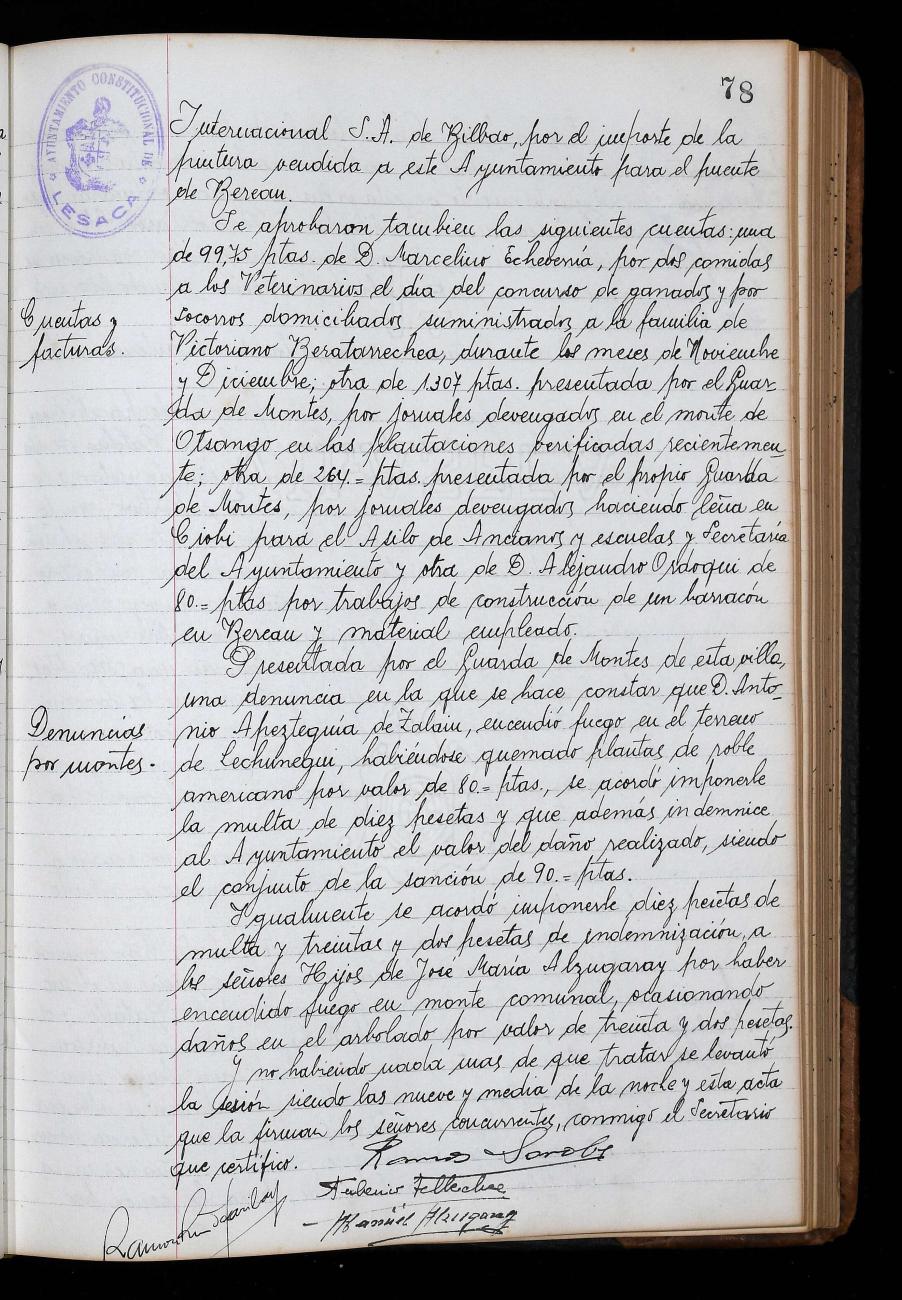 78
AYUNTAMIENTO CONSTITUCIONAL DE
LESACA
Internacional S.A. de Bilbao, por el importe de la
pintura vendida a este Ayuntamiento para el puente
de Bereau.
Se aprobaron tambien las siguientes cuentas: una
de 99,75 ptas. de D. Marcelino Echeverría, por dos comidas
a los Veterinarios el día del concurso de ganados y por
Cuentas y
facturas.
socorros domiciliados suministrados a la familia de
Victoriano Beratarrechea, durante los meses de Noviembre
y Diciembre; otra de 1.307 ptas. presentada por el Guar-
da de Montes, por jornales devengados en el monte de
Otsango en las plantaciones verificadas recientemen-
te; otra de 264.= ptas. presentada por el propio Guarda
de Montes, por jornales devengados haciendo leña en
Ciobi para el Asilo de Ancianos y escuelas y Secretaría
del Ayuntamiento y otra de D. Alejandro Ordoqui de
80.= ptas por trabajos de construcción de un barracón
en Bereau y material empleado.
Presentada por el Guarda de Montes de esta villa,
una denuncia en la que se hace constar que D. Anto-
Denuncias
por montes.
nio Apezteguía de Zalain, encendió fuego en el terreno
de Lechunegui, habiéndose quemado plantas de roble
americano por valor de 80.= ptas., se acordó imponerle
la multa de diez pesetas y que además indemnice
al Ayuntamiento el valor del daño realizado, siendo
el conjunto de la sanción de 90.= ptas.
Igualmente se acordó imponerle diez pesetas de
multa y treintas y dos pesetas de indemnización, a
los señores Hijos de José María Alzugaray por haber
encendido fuego en monte comunal, ocasionando
daños en el arbolado por valor de treinta y dos pesetas.
Y no habiendo nada mas de que tratar se levantó
la sesión siendo las nueve y media de la noche y esta acta
que la firman los señores concurrentes, conmigo el Secretario
que certifico.
Eusebio Tellechea
Manuel Alzugaray